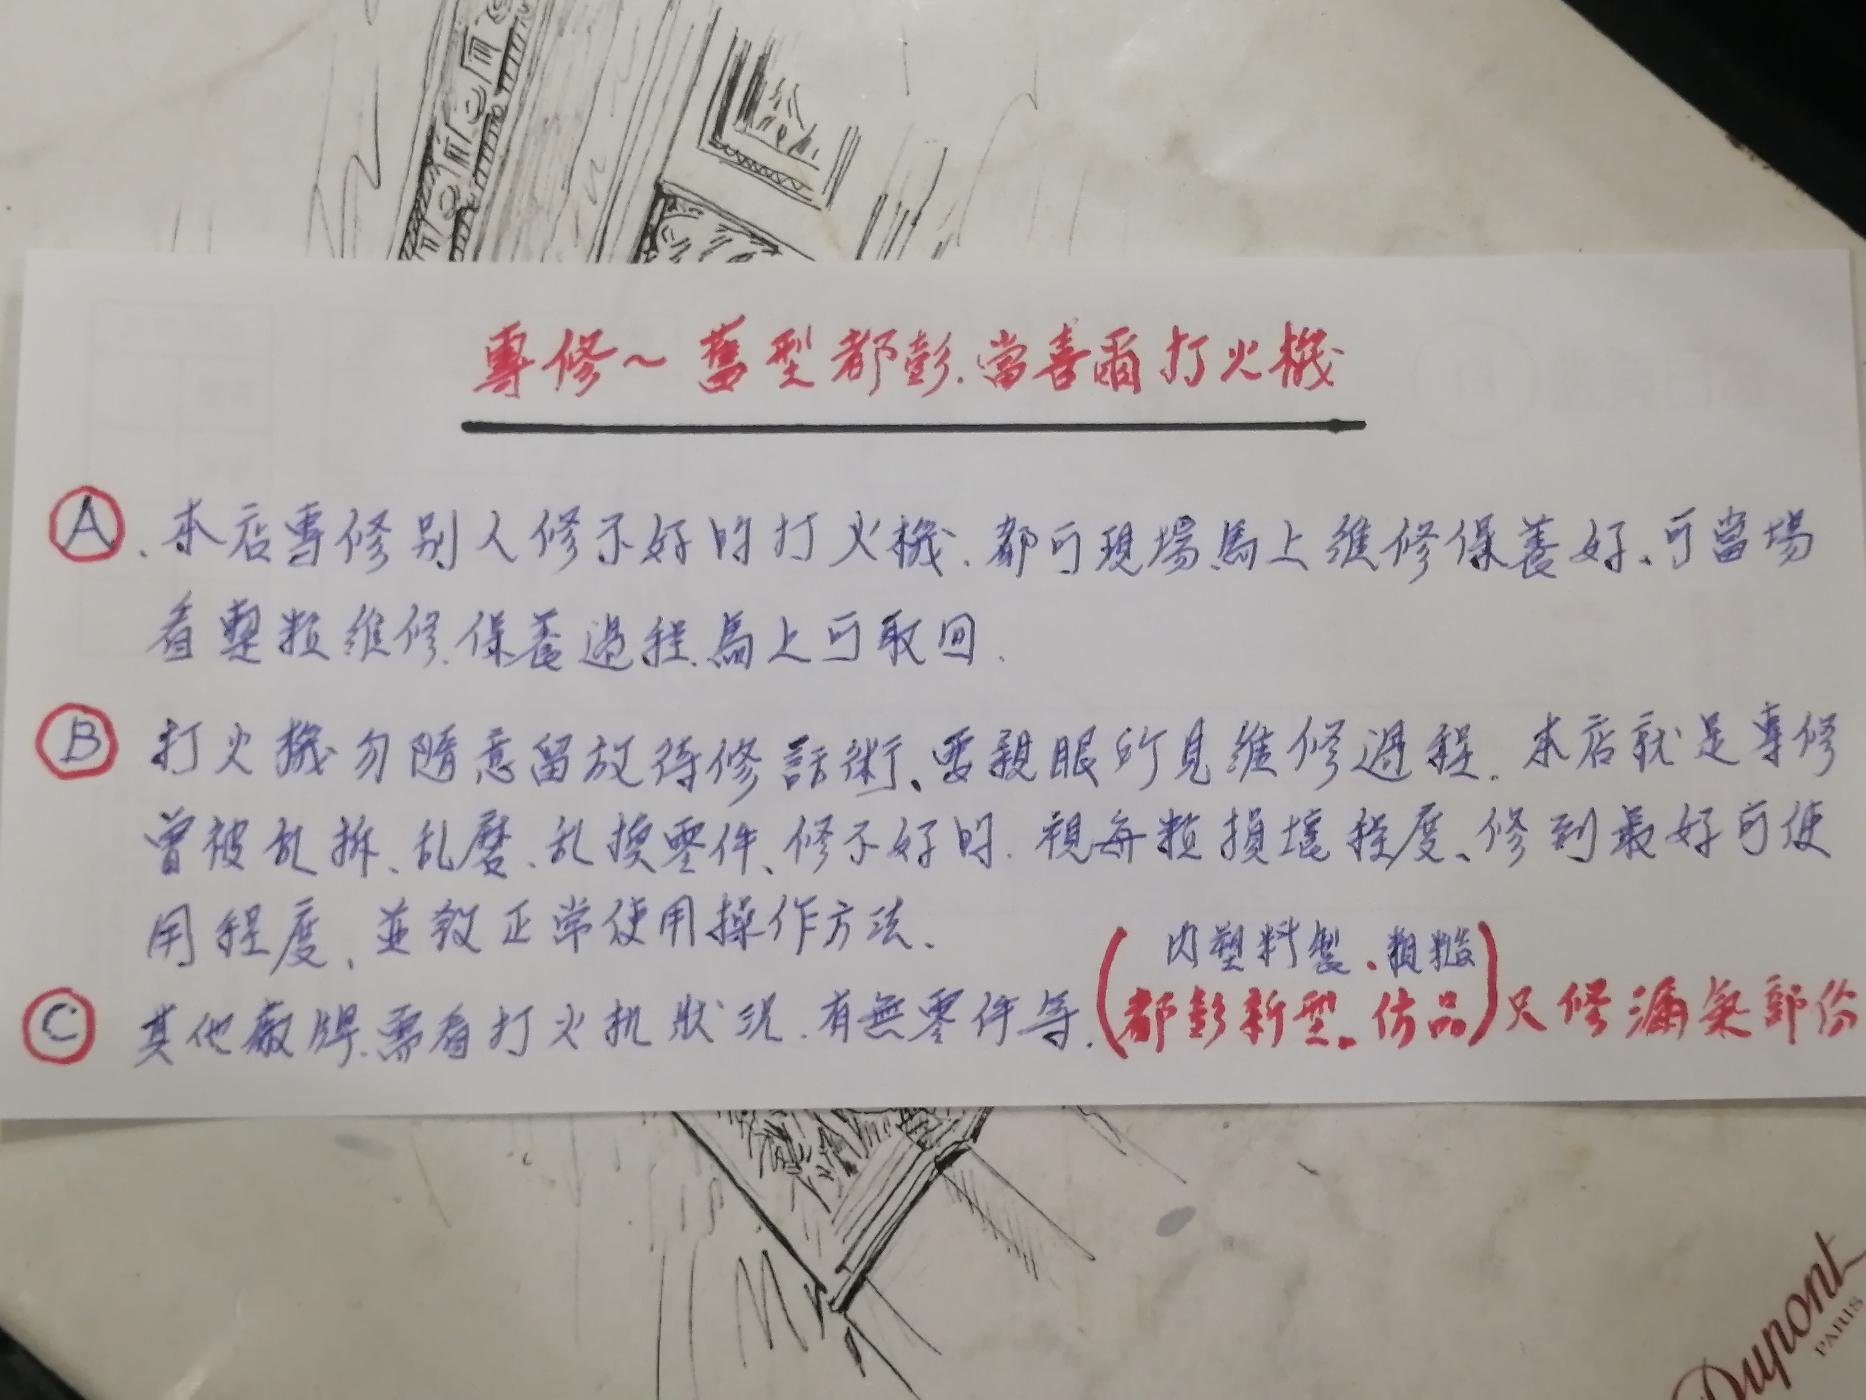 專修~舊型都彭.當喜爾打火機
A、本店專修別人修不好的打火機.都可現場馬上維修保養好、可當場
看整粒維修.保養過程.馬上可取回.
B 打火機勿隨意留放待修話術、要親眼所見維修過程.本店就是專修
曾被乱拆、乱磨、乱換零件、修不好的.視每粒損壞程度、修到最好可使
用程度、並教正常使用操作方法、
(內塑料製、粗糙)
C 其他廠牌.需看打火机狀況.有無零件等.(都彭新型。仿品)只修漏氣部份
Dupont
PARIS